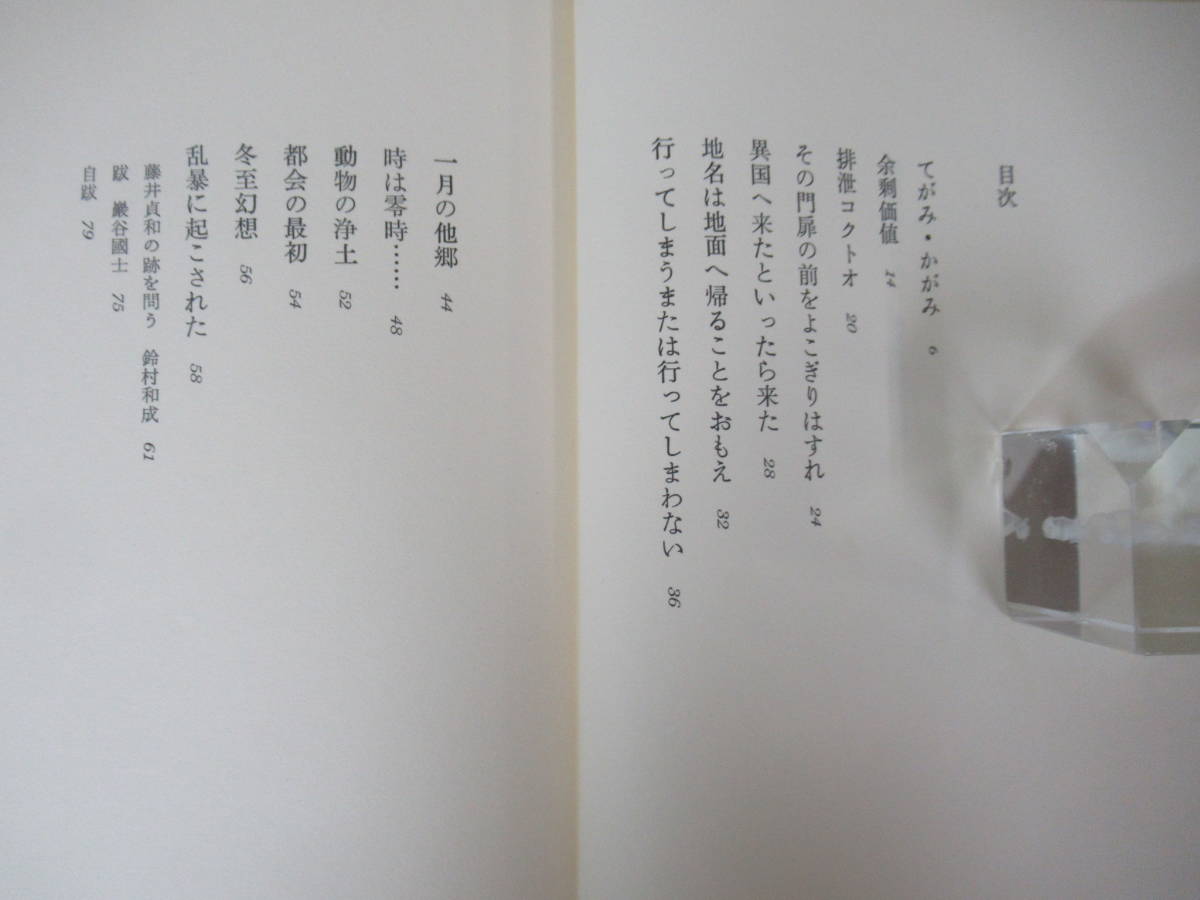 目次
てがみ・かがみ 6
余剰価値 14
排泄コクトオ 20
その門扉の前をよこぎりはすれ 24
異国へ来たといったら来た 28
地名は地面へ帰ることをおもえ 32
行ってしまうまたは行ってしまわない 36
一月の他郷 44
時は零時…… 48
動物の浄土 52
都会の最初 54
冬至幻想 56
乱暴に起こされた 58
藤井貞和の跡を問う 鈴村和成 61
跋 巖谷國士 75
自跋 79